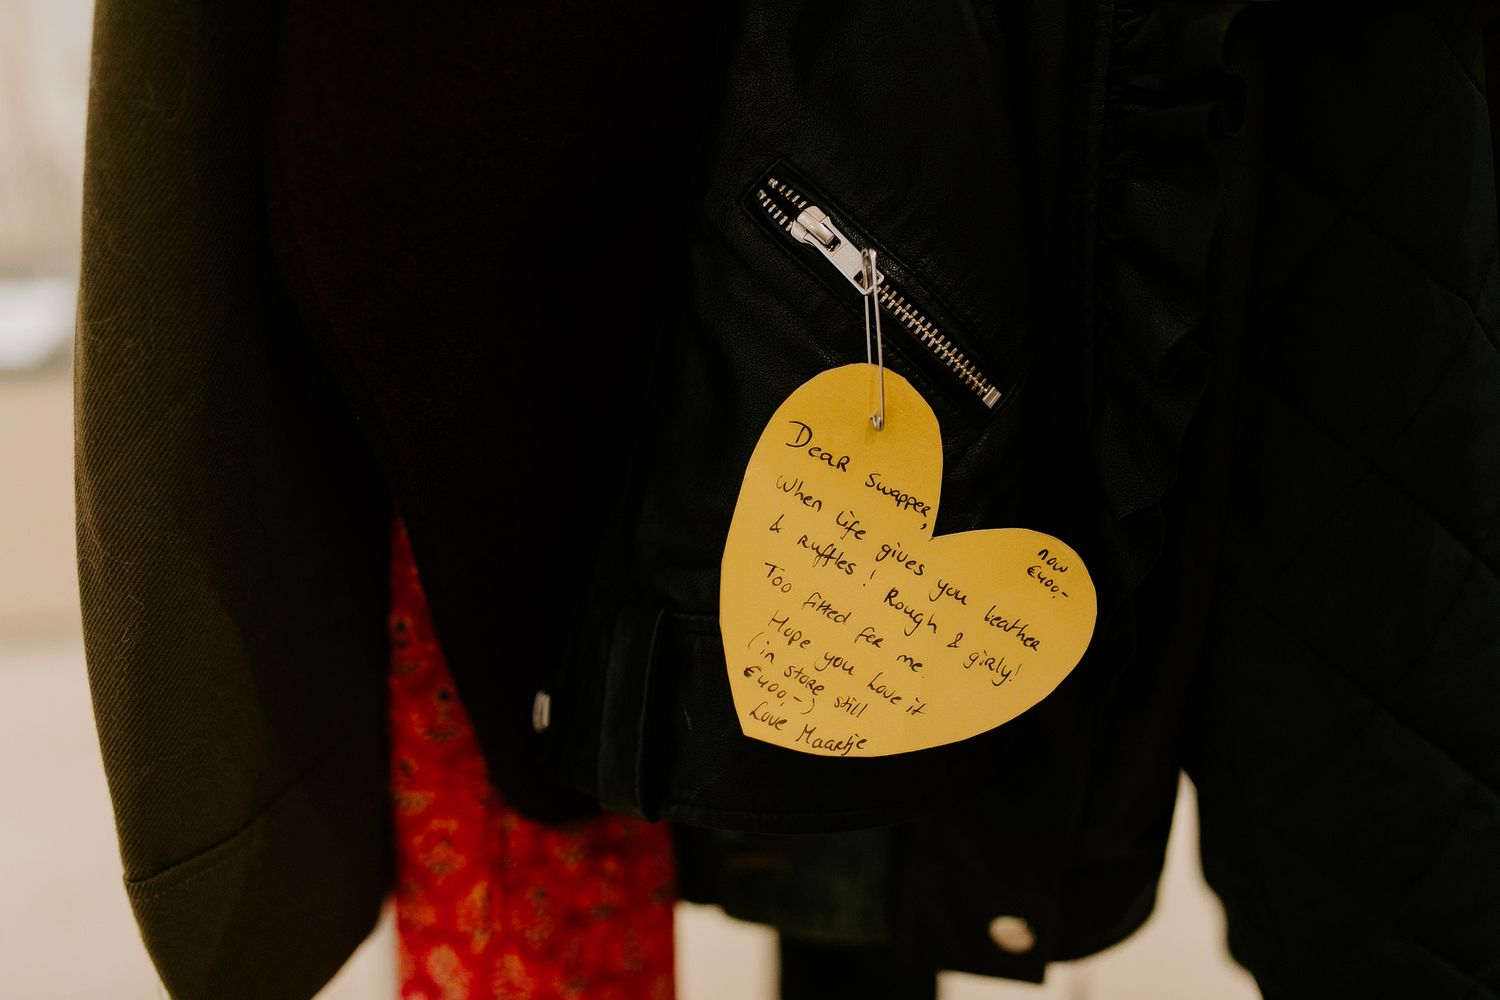 Dear Swapper,
When life gives you leather
& ruffles! Rough & girly!
Too fitted for me
Hope you love it
(in store still
€400,-)
Love Maartje
now
€400,-